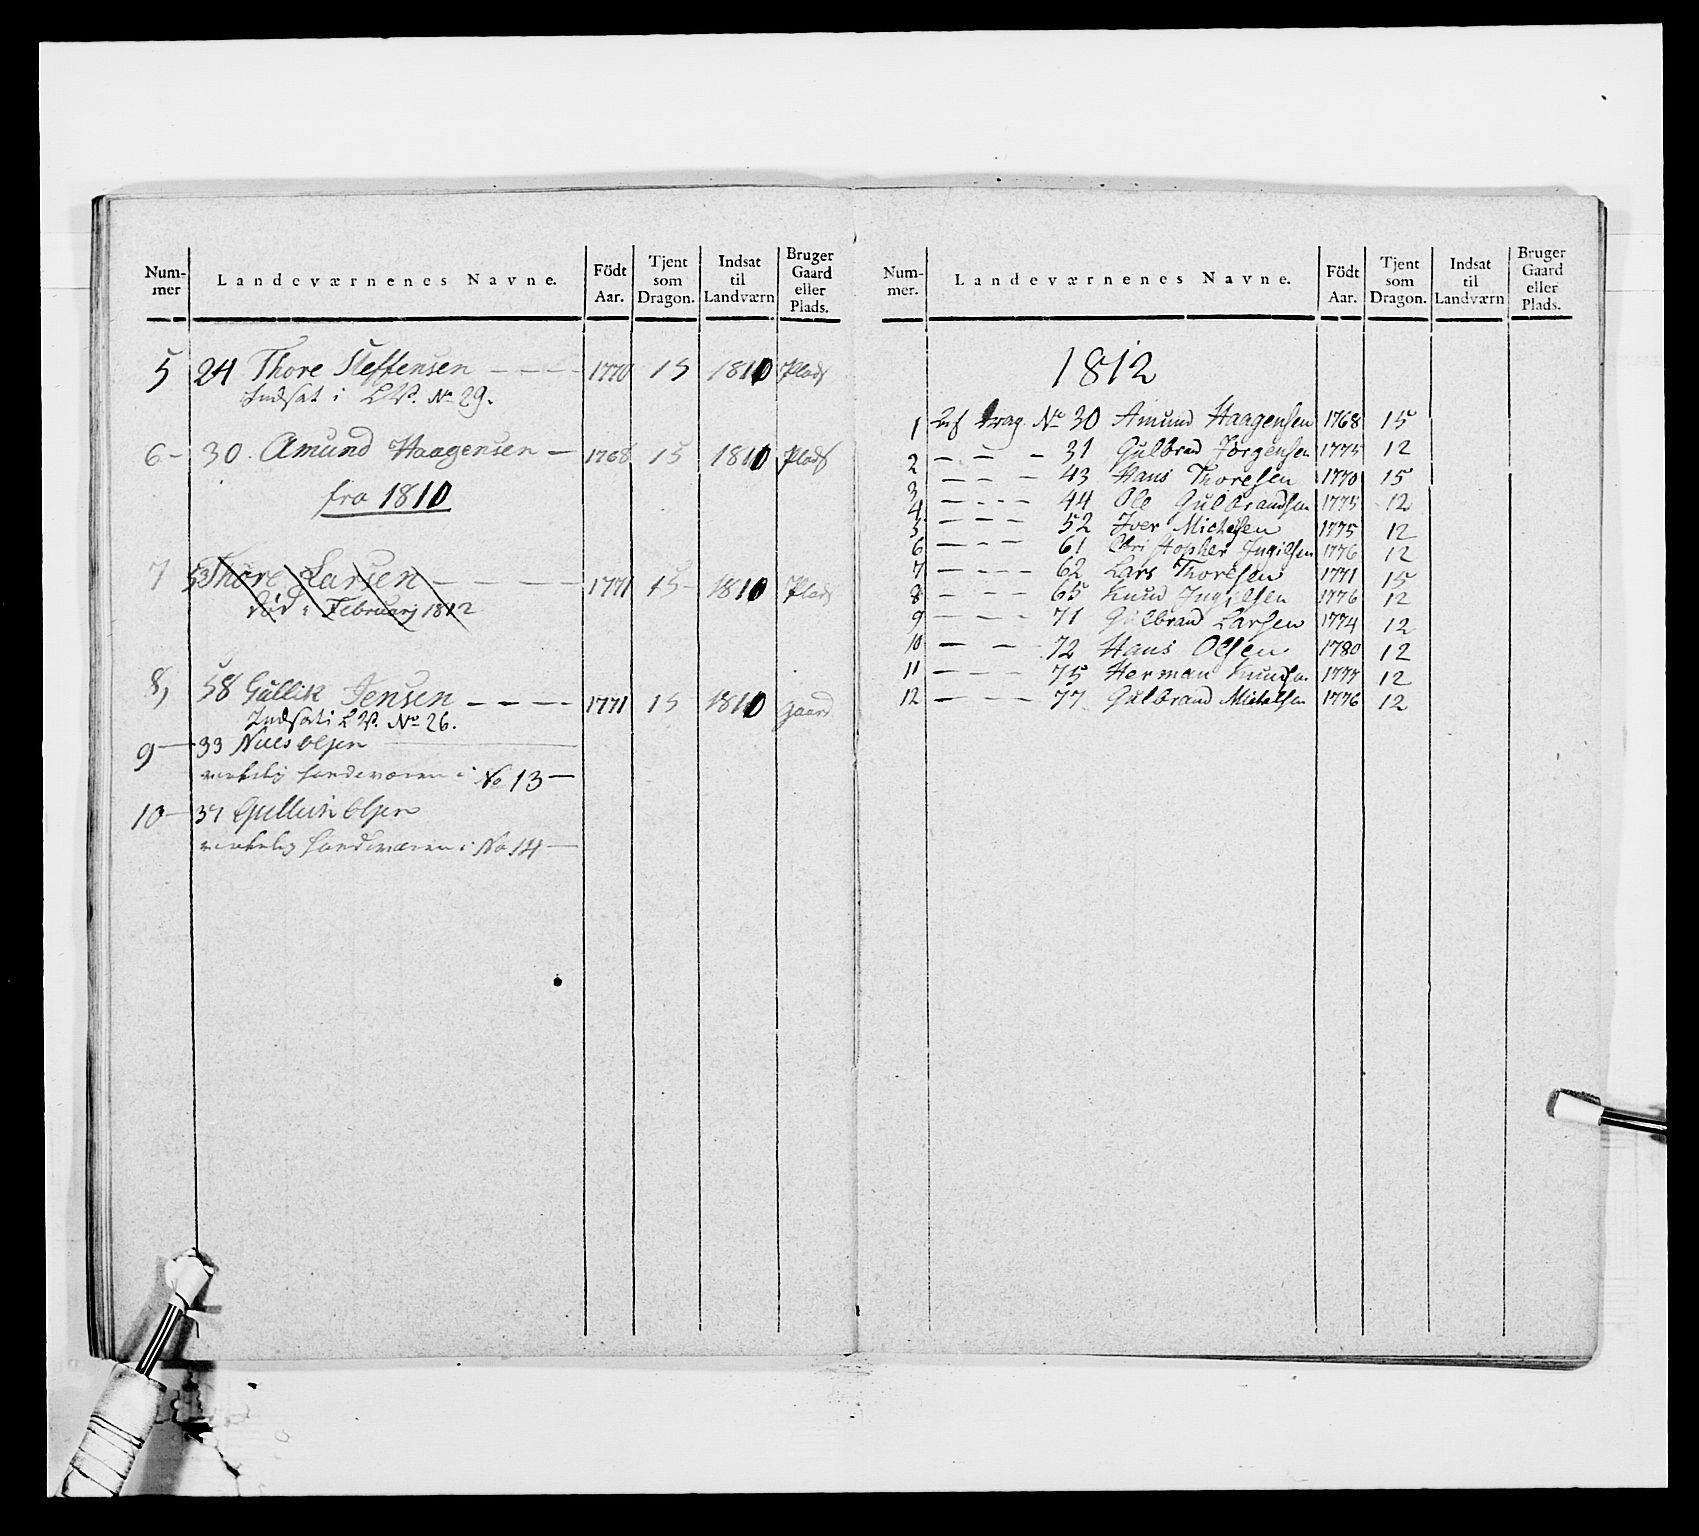 Num-mer Landeværnenes Navne. Födt Aar. Tjent som Dragon. Indsat til Landværn Bruger Gaard eller Plads.
5 24 Thore Steffensen - - - - 1770 15 1810 Plads
Indsat i LV. No 29.
6 - 30. Amund Haagensen - 1768 15 1810 Plads
fra 1810
7 53 Thore Larsen - - - - 1771 15 - 1810 Plads
död i Februarj 1812
8, 58 Gullik Jensen - - - - 1771 15 1810 gaard
Indsat i LV. No 26.
9 - 33 Niels Olsen
virkelig Landeværn i No 13 -
10 - 37 Gulluk Olsen
virkelig Landeværn i No 14 -
Num-mer. Landeværnenes Navne. Födt Aar. Tjent som Dragon. Indsat til Landværn Bruger Gaard eller Plads.
1812
1 Drag No 30 Amund Haagensen 1768 15
2 - - - 31 Gulbrand Jörgensen 1775 12
3 - - - 43 Hans Thoresen 1770 15
4 - - - 44 Ole Gulbrandsen 1775 12
5 - - - 52 Iver Michelsen 1775 12
6 - - - 61 Christopher Ingilsen 1776 12
7 - - - 62 Lars Thoresen 1771 15
8 - - - 65 Knud Ingilsen 1776 12
9 - - - 71 Gulbrand Larsen 1774 12
10 - - - 72 Hans Olsen 1780 12
11 - - - 75 Herman Knudsen 1777 12
12 - - - 77 Gulbrand Michelsen 1776 12